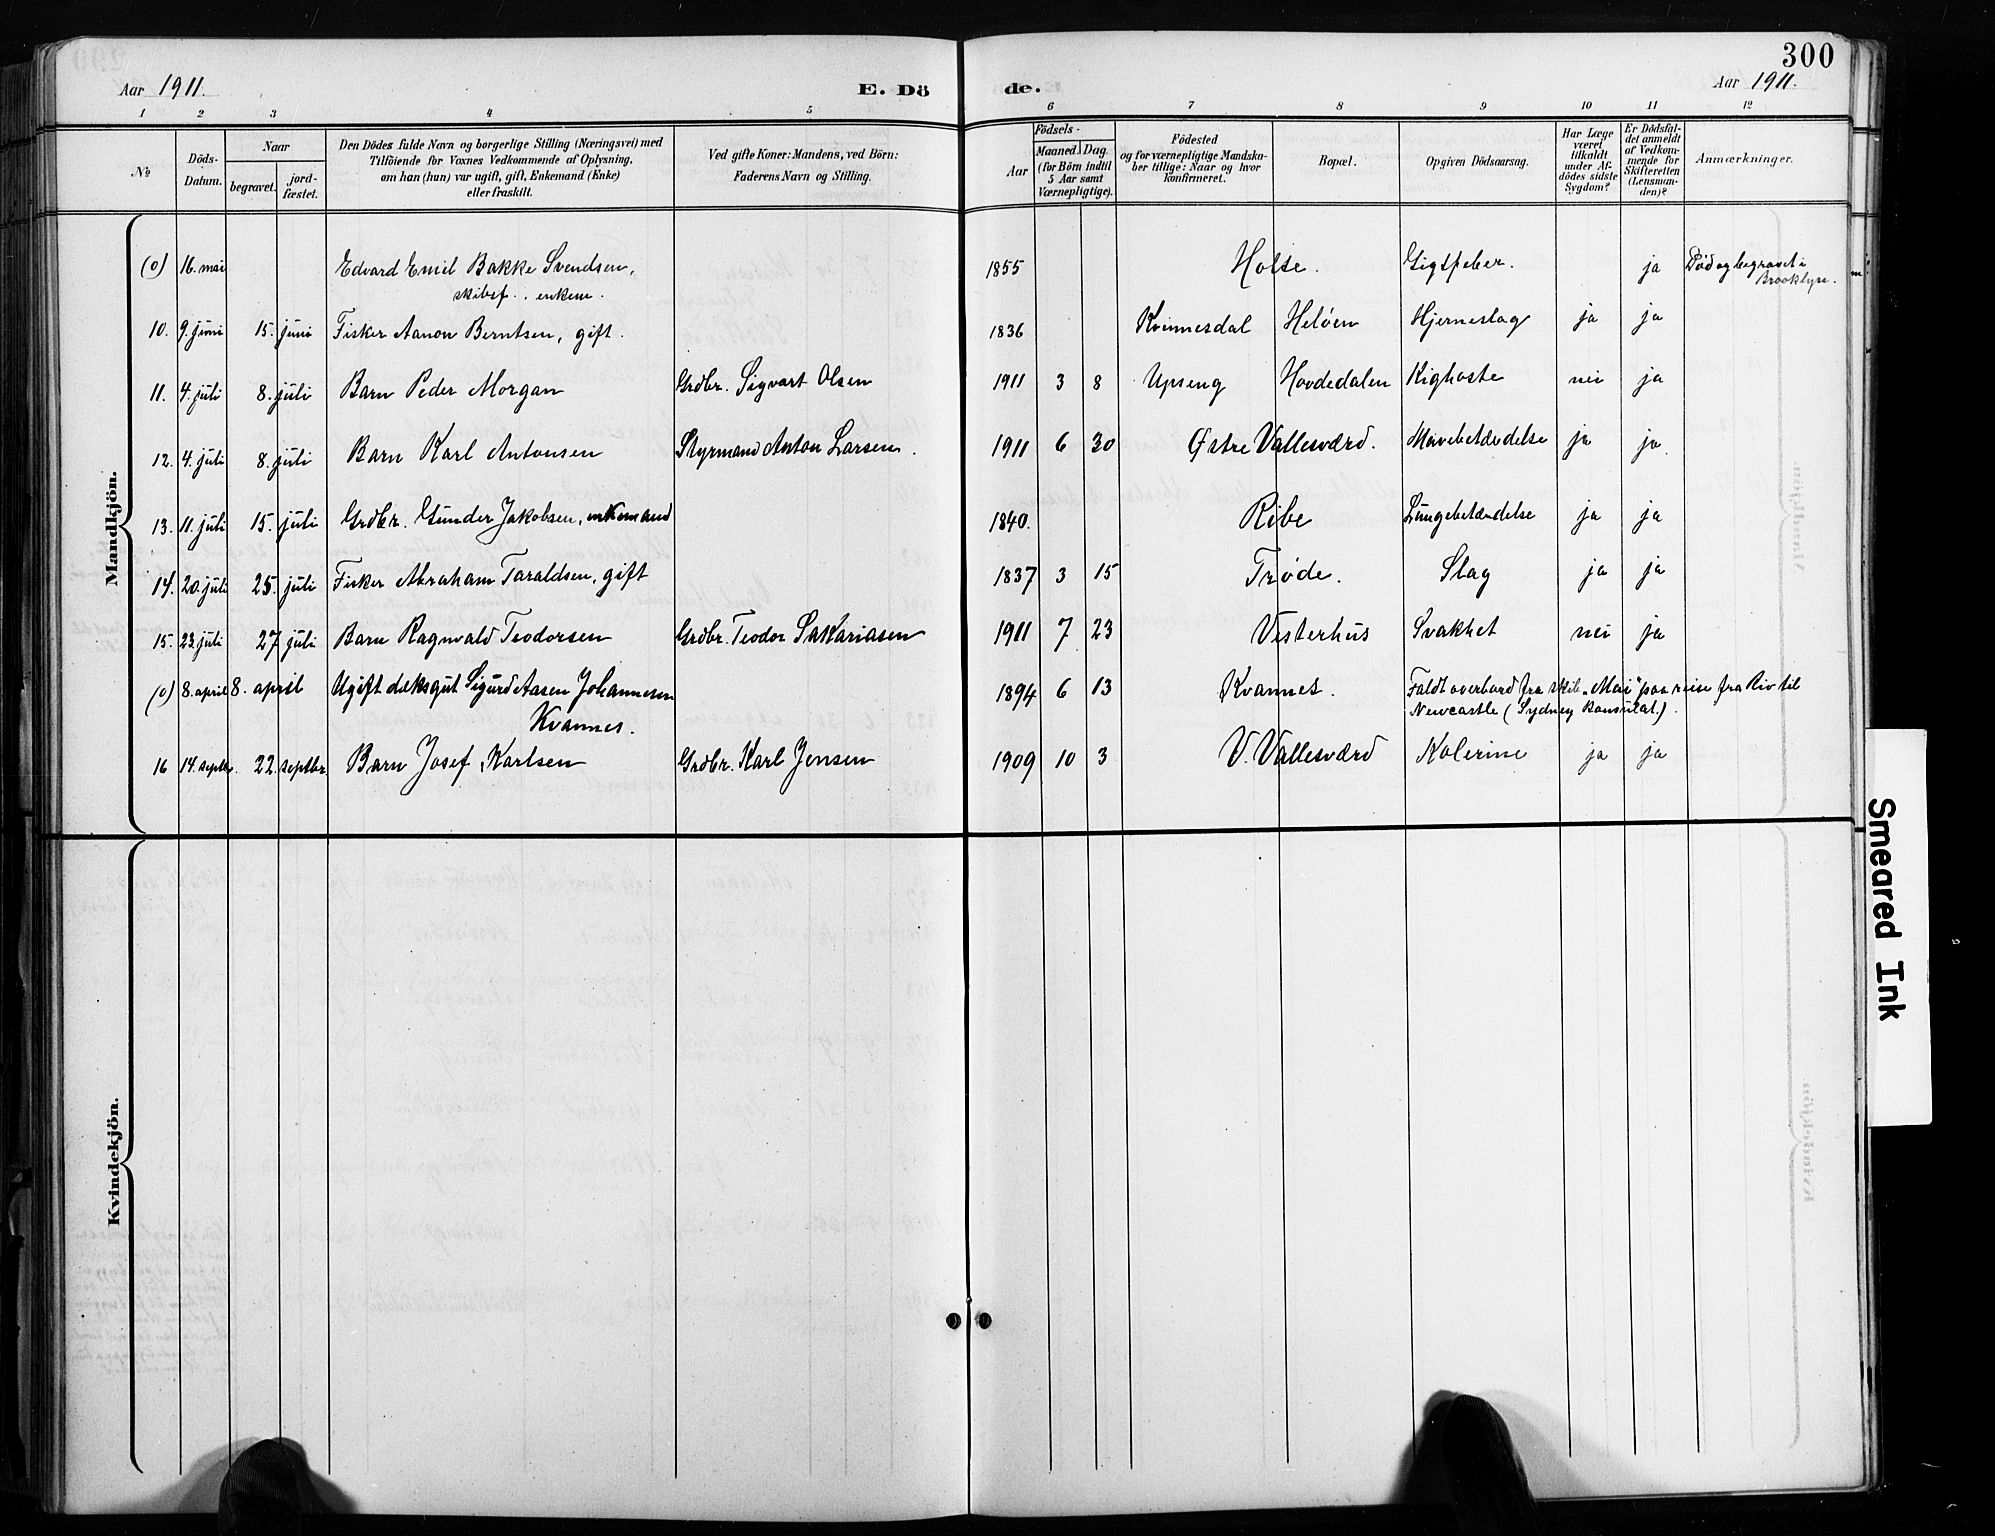 300
Aar 1911. E. Dö de. Aar 1911.
1 2 3 4 5 6 7 8 9 10 11 12
№
Döds-Datum.
Naar
begravet.
jord-fæstet.
Den Dödes fulde Navn og borgerlige Stilling (Næringsvei) med
Tilföiende for Voxnes Vedkommende af Oplysning,
om han (hun) var ugift, gift, Enkemand (Enke)
eller fraskilt.
Ved gifte Koner: Mandens, ved Börn:
Faderens Navn og Stilling.
Födsels-
Aar
Maaned. Dag.
(for Börn indtil
5 Aar samt
Værnepligtige).
Födested
og for værnepligtige Mandska-
ber tillige: Naar og hvor
konfirmeret.
Bopæl.
Opgiven Dödsaarsag.
Har Læge
været
tilkaldt
under Af-
dödes sidste
Sygdom?
Er Dödsfal-
det anmeldt
af Vedkom-
mende for
Skifteretten
(Lensman-
den)?
Anmærkninger.
Mandkjön.
(0) 16. mai Edvard Emil Bakke Svendsen, 1855 Holte. Gigtfeber. ja Död og begravet i
skibsf. enkem. Brooklyn.
10. 9. juni 15. juni Fisker Aanon Berntsen, gift. 1836 Kvinnesdal Heløen Hjerneslag ja ja
11. 4. juli 8. juli Barn Peder Morgan Grdbr. Sigvart Olsen 1911 3 8 Upseng Hovdedalen Kighoste nei ja
12. 4. juli 8. juli Barn Karl Antonsen Styrmand Anton Larsen. 1911 6 30 Østre Vallesværd. Mavebetændelse ja ja.
13. 11. juli 15. juli Grdbr. Gunder Jakobsen, enkemand 1840. Ribe Lungebetændelse ja ja
14. 20. juli 25. juli Fisker Abraham Taraldsen, gift 1837 3 15 Trøde. Slag ja ja
15. 23. juli 27. juli Barn Ragnvald Teodorsen Grdbr. Teodor Sakariasen 1911 7 23 Vesterhus Svakhet nei ja
(0) 8. april 8. april Ugift dæksgut Sigurd Aasen Johannesen 1894 6 13 Kvannes. Faldt overbord fra skib „Mei" paa reise fra Rio til
Kvannes. Newcastle (Sydney Konsulat).
16 14. septbr. 22. septbr. Barn Josef Karlsen Grdbr. Karl Jensen 1909 10 3 V. Vallesværd Kolerine ja ja
Kvindekjön.
Smeared Ink